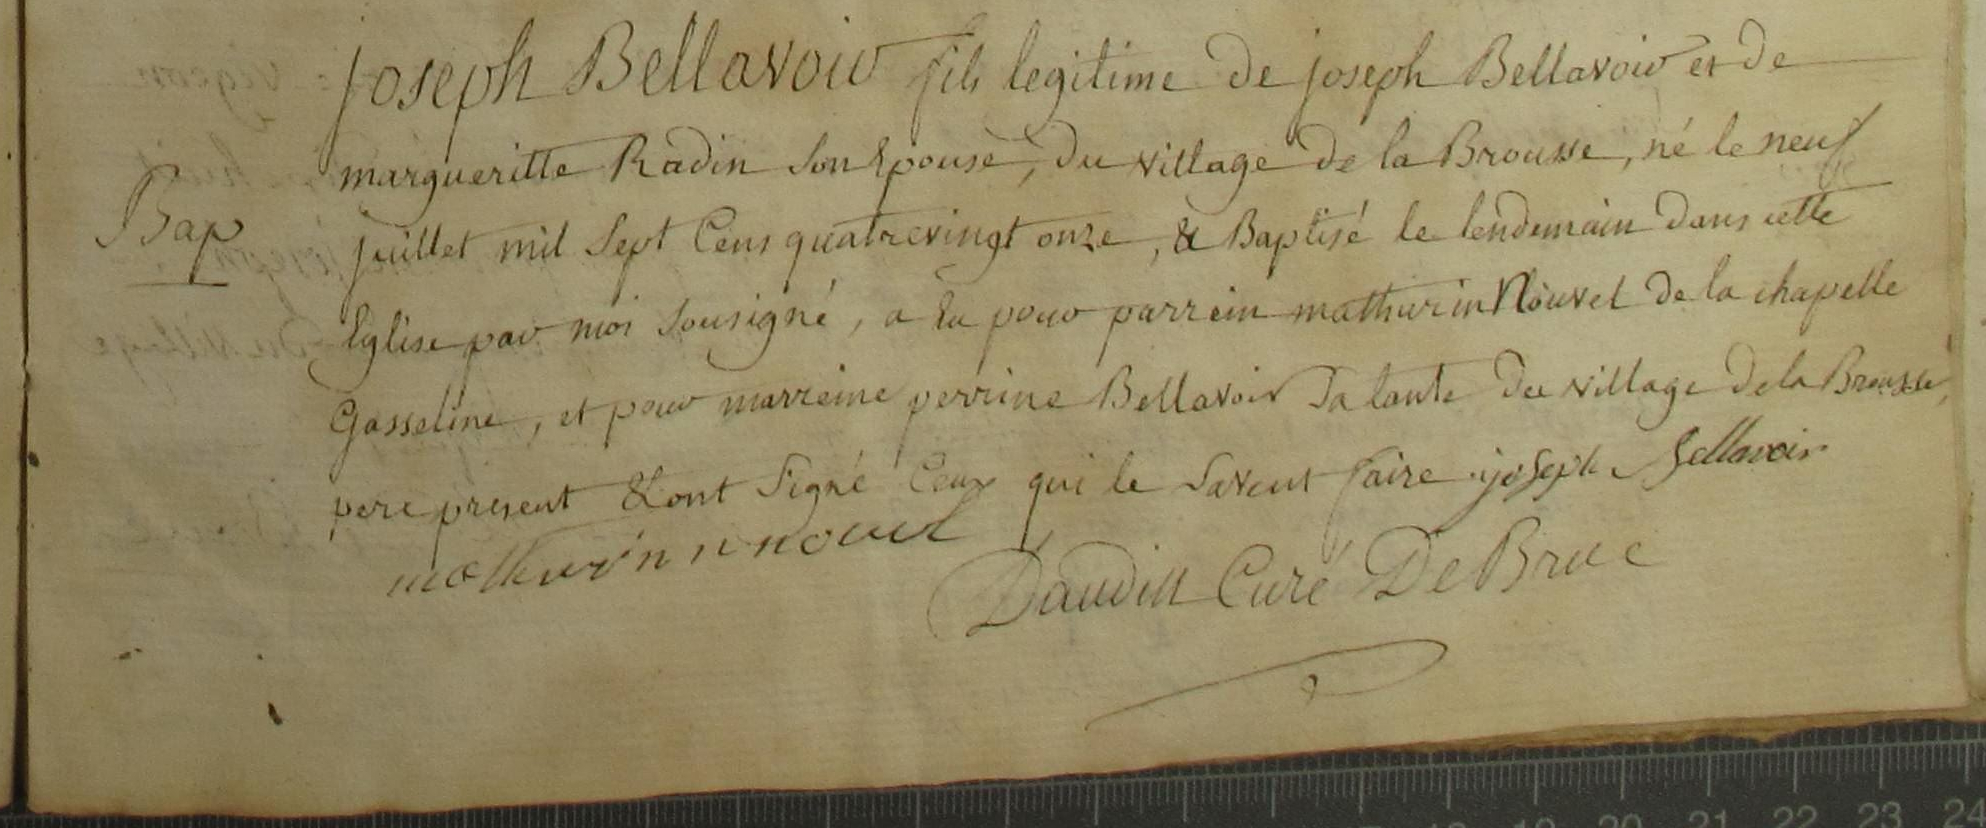 Joseph Bellavoir fils legitime de joseph Bellavoir et de
margueritte Radin son Epouse, du village de la Brousse, né le neuf
Bap
juillet mil sept Cens quatrevingt onze, & Baptisé le lendemain dans cette
Eglise par moi sousigné, a Eu pour parrein mathurin Nouvel de la chapelle
Gasseline, et pour marreine perrine Bellavoir sa tante du village de la Brousse,
pere present & ont signé Ceux qui le savent faire. joseph Bellavoir
mathurin nouvel
Daudin Curé De Bruc
18 19 20 21 22 23 24